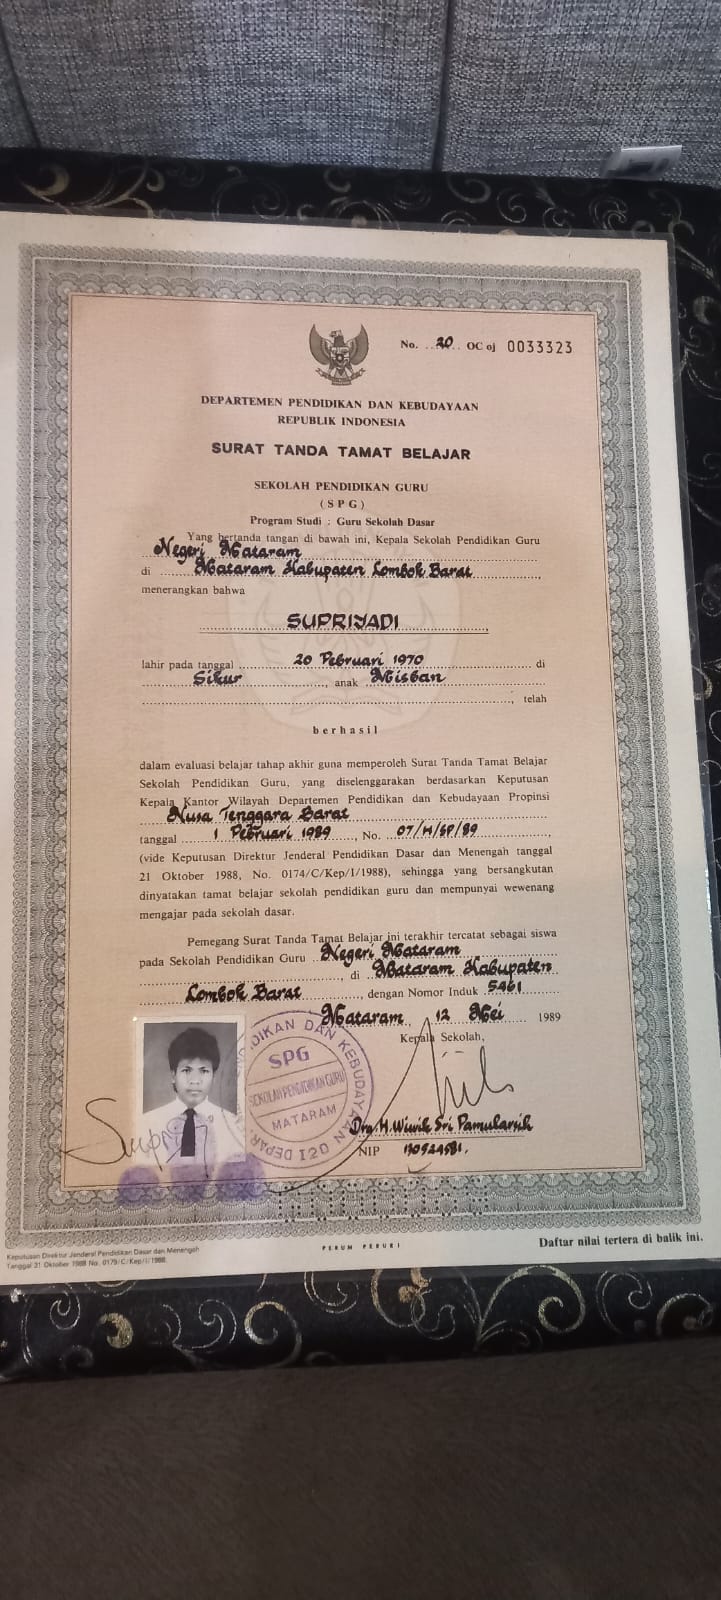 No. 20 OC oj 0033323
DEPARTEMEN PENDIDIKAN DAN KEBUDAYAAN
REPUBLIK INDONESIA
SURAT TANDA TAMAT BELAJAR
SEKOLAH PENDIDIKAN GURU
(SPG)
Program Studi : Guru Sekolah Dasar
Yang bertanda tangan di bawah ini, Kepala Sekolah Pendidikan Guru
Negeri Mataram
di Mataram Kabupaten Lombok Barat,
menerangkan bahwa
SUPRIYADI,
lahir pada tanggal 20 Pebruari 1970 di
Sikur, anak Misban
, telah
berhasil
dalam evaluasi belajar tahap akhir guna memperoleh Surat Tanda Tamat Belajar
Sekolah Pendidikan Guru, yang diselenggarakan berdasarkan Keputusan
Kepala Kantor Wilayah Departemen Pendidikan dan Kebudayaan Propinsi
Nusa Tenggara Barat
tanggal 1 Pebruari 1989, No. 07/H/SP/89,
(vide Keputusan Direktur Jenderal Pendidikan Dasar dan Menengah tanggal
21 Oktober 1988, No. 0174/C/Kep/I/1988), sehingga yang bersangkutan
dinyatakan tamat belajar sekolah pendidikan guru dan mempunyai wewenang
mengajar pada sekolah dasar.
Pemegang Surat Tanda Tamat Belajar ini terakhir tercatat sebagai siswa
pada Sekolah Pendidikan Guru Negeri Mataram
, di Mataram Kabupaten
Lombok Barat, dengan Nomor Induk 5461
Mataram, 12 Mei 1989
Kepala Sekolah,
DIKAN DAN KEBUDAYAAN
SPG
SEKOLAH PENDIDIKAN GURU
MATARAM
DEPAR
Drg. H. Wiwik Sri Pamularsih
NIP
PERUM PERURI
Daftar nilai tertera di balik ini.
Keputusan Direktur Jenderal Pendidikan Dasar dan Menengah
Tanggal 31 Oktober 1988 No. 0179/C/Kep/I/1988.